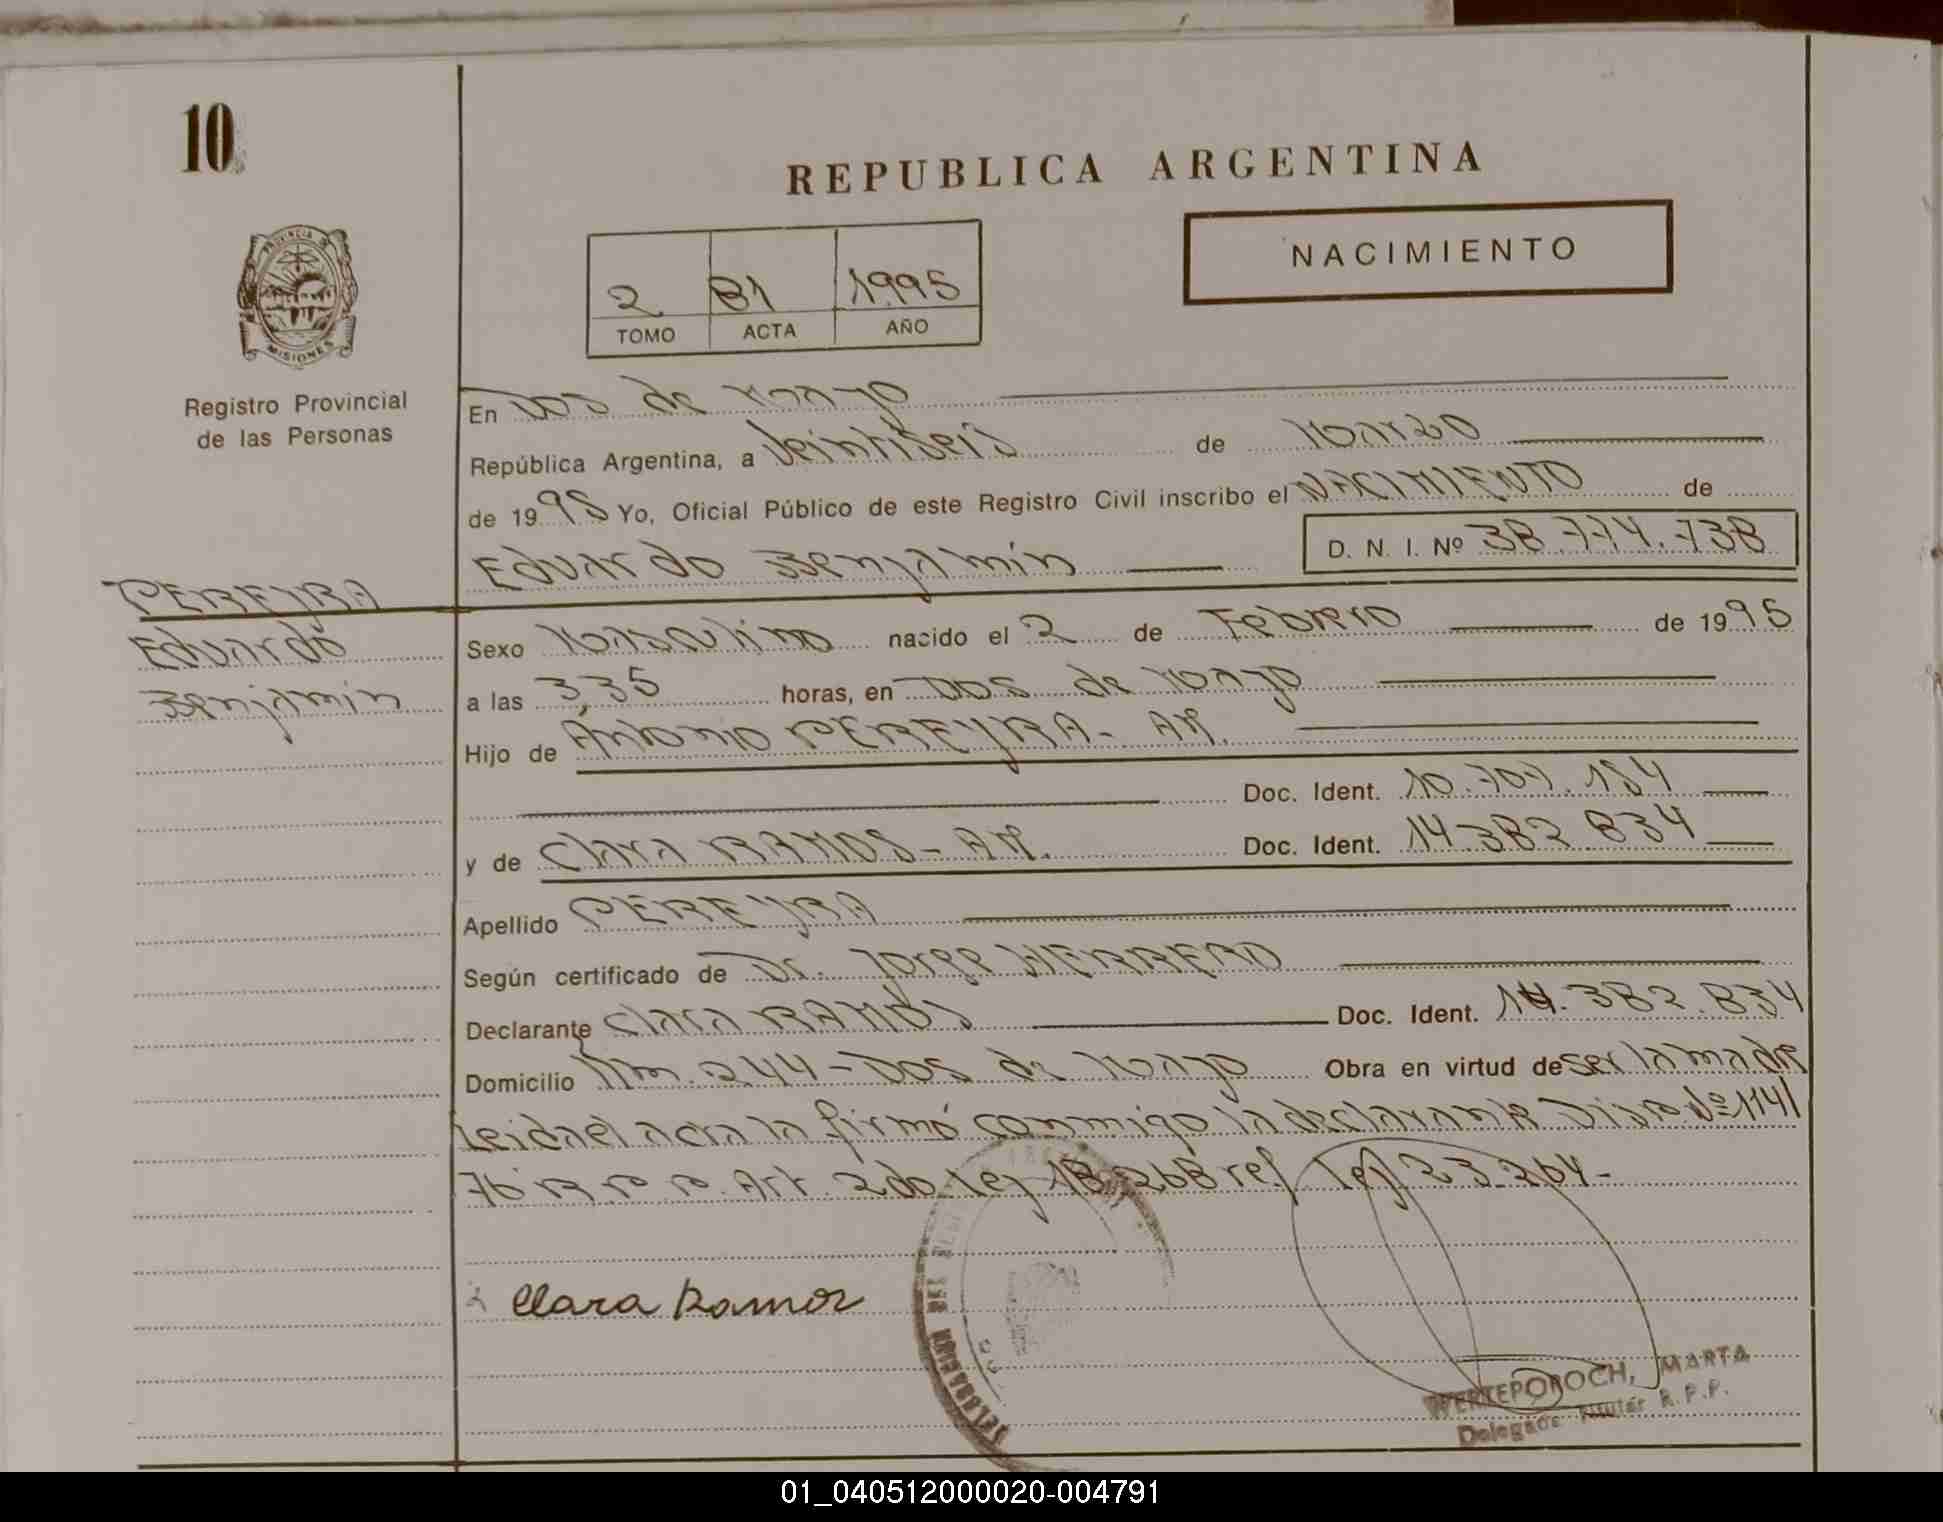 10
REPUBLICA ARGENTINA
NACIMIENTO
2 81 1995
TOMO ACTA AÑO
PROVINCIA DE
MISIONES
Registro Provincial
de las Personas
En Dos de Mayo
República Argentina, a Veintiseis de Marzo
de 1995 Yo, Oficial Público de este Registro Civil inscribo el NACIMIENTO de
Eduardo Benjamin D. N. I. Nº 38.774.738
PEREYRA
Eduardo
Benjamin
Sexo Masculino nacido el 2 de Febrero de 1995
a las 3,35 horas, en Dos de Mayo
Hijo de Antonio PEREYRA - AR.
Doc. Ident. 10.707.154
y de Clara RAMOS - AR. Doc. Ident. 14.382.834
Apellido PEREYRA
Según certificado de Dr. Jorge HERRERO
Declarante Clara RAMOS Doc. Ident. 14.382.834
Domicilio Km. 244 - Dos de Mayo Obra en virtud de ser la madre
Leida el acta la firmó conmigo la declarante Disp. Nº 1141
76 R.P.P. Art. 2do ley 18.268 ref ley 23.264-
Clara Ramos
WERTEPOROCH, MARTA
Delegada Titular R.P.P.
01_040512000020-004791